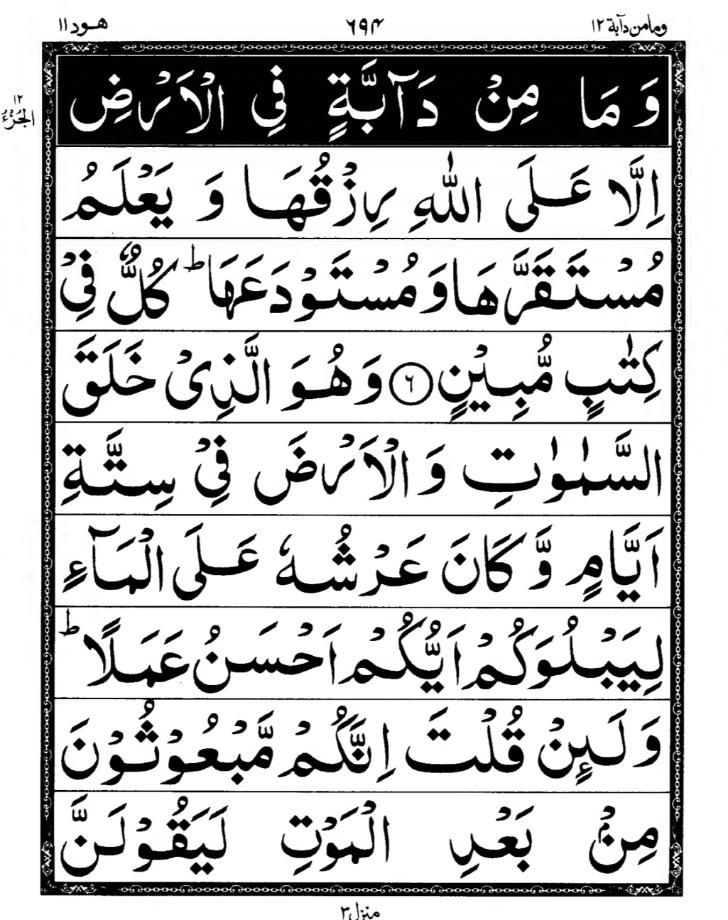 ومامن دآبة ١٢ ٦٩۴ هود ١١
وَ مَا مِنْ دَآبَّةٍ فِي الْاَرْضِ
١٢
الجُزْءُ
اِلَّا عَلَى اللّٰهِ رِزْقُهَا وَ يَعْلَمُ
مُسْتَقَرَّهَا وَ مُسْتَوْدَعَهَا ؕ كُلٌّ فِيْ
كِتٰبٍ مُّبِيْنٍ ﴿٦﴾ وَ هُوَ الَّذِيْ خَلَقَ
السَّمٰوٰتِ وَ الْاَرْضَ فِيْ سِتَّةِ
اَيَّامٍ وَّ كَانَ عَرْشُهٗ عَلَى الْمَآءِ
لِيَبْلُوَكُمْ اَيُّكُمْ اَحْسَنُ عَمَلًا ؕ
وَ لَىِٕنْ قُلْتَ اِنَّكُمْ مَّبْعُوْثُوْنَ
مِنْۢ بَعْدِ الْمَوْتِ لَيَقُوْلَنَّ
منزل ٣